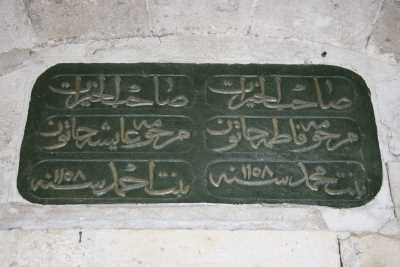 صاحب الخيرات صاحب الخيرات
مرحومه فاطمه خاتون مرحومه عايشه خاتون
بنت محمد سنه ١١٥٨ بنت احمد سنه ١١٥٨